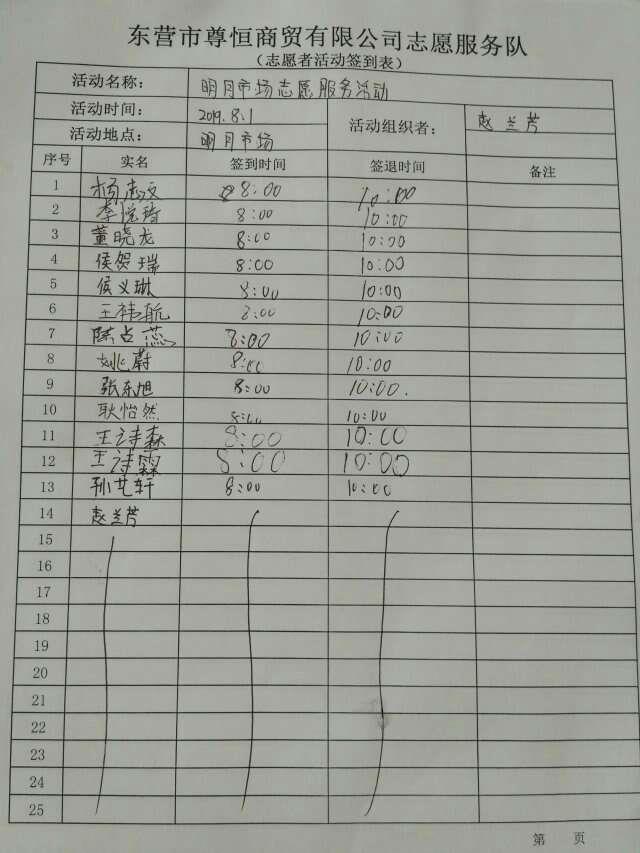 东营市尊恒商贸有限公司志愿服务队
（志愿者活动签到表）
活动名称： 明月市场志愿服务活动
活动时间： 2019.8.1 活动组织者： 赵兰芳
活动地点： 明月市场
序号 实名 签到时间 签退时间 备注
1 杨志文 8:00 10:00
2 李悦琦 8:00 10:00
3 董晓龙 8:00 10:00
4 侯贺瑞 8:00 10:00
5 侯义琳 8:00 10:00
6 王祎航 8:00 10:00
7 陈占蕊 8:00 10:00
8 姚蔚 8:00 10:00
9 张东旭 8:00 10:00.
10 耿怡然 8:00 10:00
11 王诗森 8:00 10:00
12 王诗霖 8:00 10:00
13 孙艺轩 8:00 10:00
14 赵兰芳
15
16
17
18
19
20
21
22
23
24
25
第 页